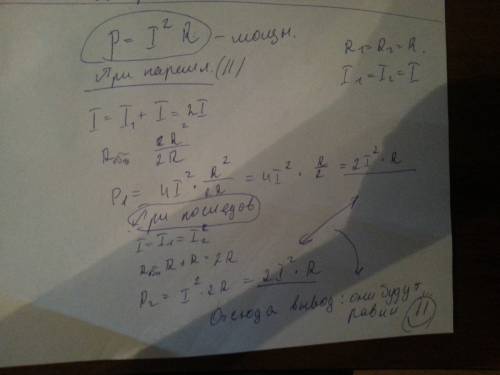 P = I² R - мощн.
R₁ = R₂ = R.
I₁ = I₂ = I
При паралл. (II)
I = I₁ + I = 2I
R R² / 2R
P₁ = 4I² · R² / 2R = 4I² · R/2 = 2I² · R
При последов
I = I₁ = I₂
R R + R = 2R
P₂ = I² · 2R = 2I² · R
Отсюда вывод: они будут
равны !!